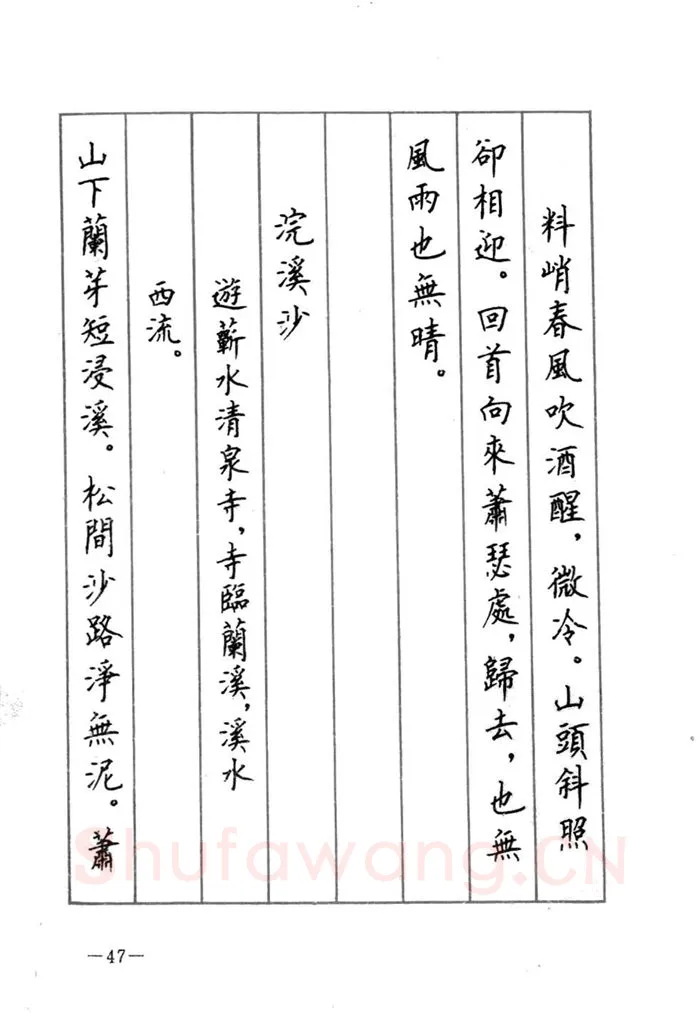 料峭春風吹酒醒，微冷。山頭斜照
卻相迎。回首向來蕭瑟處，歸去，也無
風雨也無晴。
浣溪沙
遊蘄水清泉寺，寺臨蘭溪，溪水
西流。
山下蘭芽短浸溪。松間沙路淨無泥。蕭
Shufawang.CN
—47—